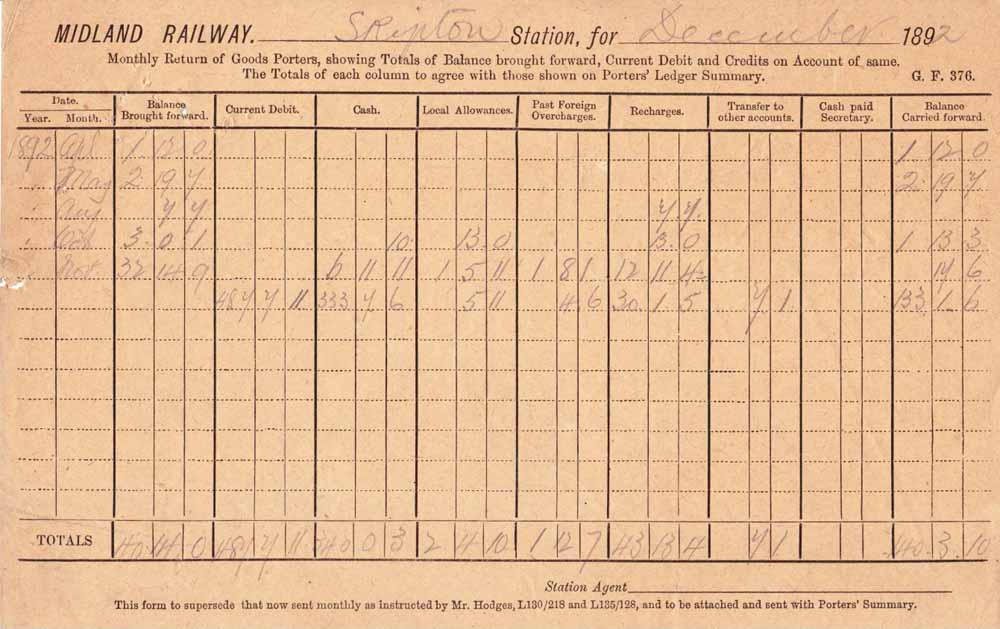 MIDLAND RAILWAY. Skipton Station, for December 1892
Monthly Return of Goods Porters, showing Totals of Balance brought forward, Current Debit and Credits on Account of same.
The Totals of each column to agree with those shown on Porters' Ledger Summary. G. F. 376.
Date. Balance Brought forward. Current Debit. Cash. Local Allowances. Past Foreign Overcharges. Recharges. Transfer to other accounts. Cash paid Secretary. Balance Carried forward.
Year. Month.
1892 Apl 1 12 0 1 12 0
" May 2 19 7 2 19 7
" Aug 7 7 7 7
" Oct 3 0 1 10 13 0 13 0 1 13 3
" Nov 32 14 9 6 11 11 1 5 11 1 8 1 12 11 4 17 6
487 7 11 333 7 6 5 11 4 6 30 1 5 7 1 133 1 6
TOTALS 40 14 0 487 7 11 340 0 3 2 4 10 1 12 7 43 13 4 7 1 140 3 10
Station Agent
This form to supersede that now sent monthly as instructed by Mr. Hodges, L130/218 and L135/128, and to be attached and sent with Porters' Summary.